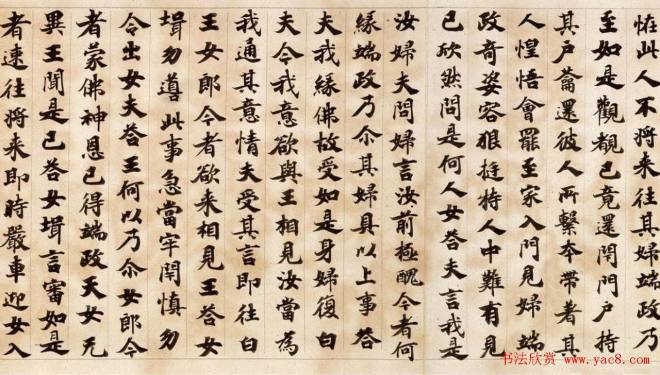 恠此人不將来往其婦端政乃
至如是觀覩已竟還閇門戶持
其戶蘥還彼人所繫夲帶著其
人惶悟會罷至家入門見婦端
政奇姿容狠挺特人中難有見
已欣然問是何人女荅夫言我是
汝婦夫問婦言汝前極醜今者何
緣端政乃尒其婦具以上事荅
夫我緣佛故受如是身婦復白
夫今我意欲與王相見汝當為
我通其意情夫受其言即往白
王女郎今者欲来相見王荅女
壻勿導此事急當牢閇慎勿
令出女夫荅王何以乃尒女郎今
者蒙佛神恩已得端政天女无
異王聞是已荅女壻言審如是
者速往将来即時嚴車迎女入
书法欣赏 www.yac8.com